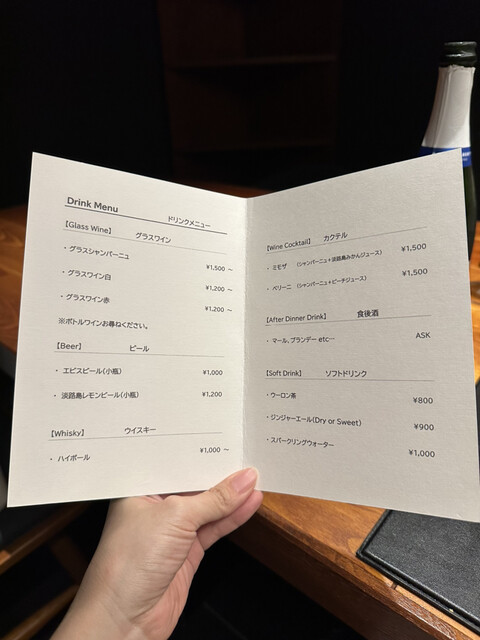 Drink Menu ドリンクメニュー
【Glass Wine】 グラスワイン
・ グラスシャンパーニュ ¥1,500 ～
・ グラスワイン白 ¥1,200 ～
・ グラスワイン赤 ¥1,200 ～
※ボトルワインお尋ねください。
【Beer】 ビール
・ エビスビール(小瓶) ¥1,000
・ 淡路島レモンビール(小瓶) ¥1,200
【Whisky】 ウイスキー
・ ハイボール ¥1,000 ～
【Wine Cocktail】 カクテル
・ ミモザ (シャンパーニュ+淡路島みかんジュース) ¥1,500
・ ベリーニ (シャンパーニュ+ピーチジュース) ¥1,500
【After Dinner Drink】 食後酒
・ マール、ブランデー etc… ASK
【Soft Drink】 ソフトドリンク
・ウーロン茶 ¥800
・ジンジャーエール(Dry or Sweet) ¥900
・スパークリングウォーター ¥1,000